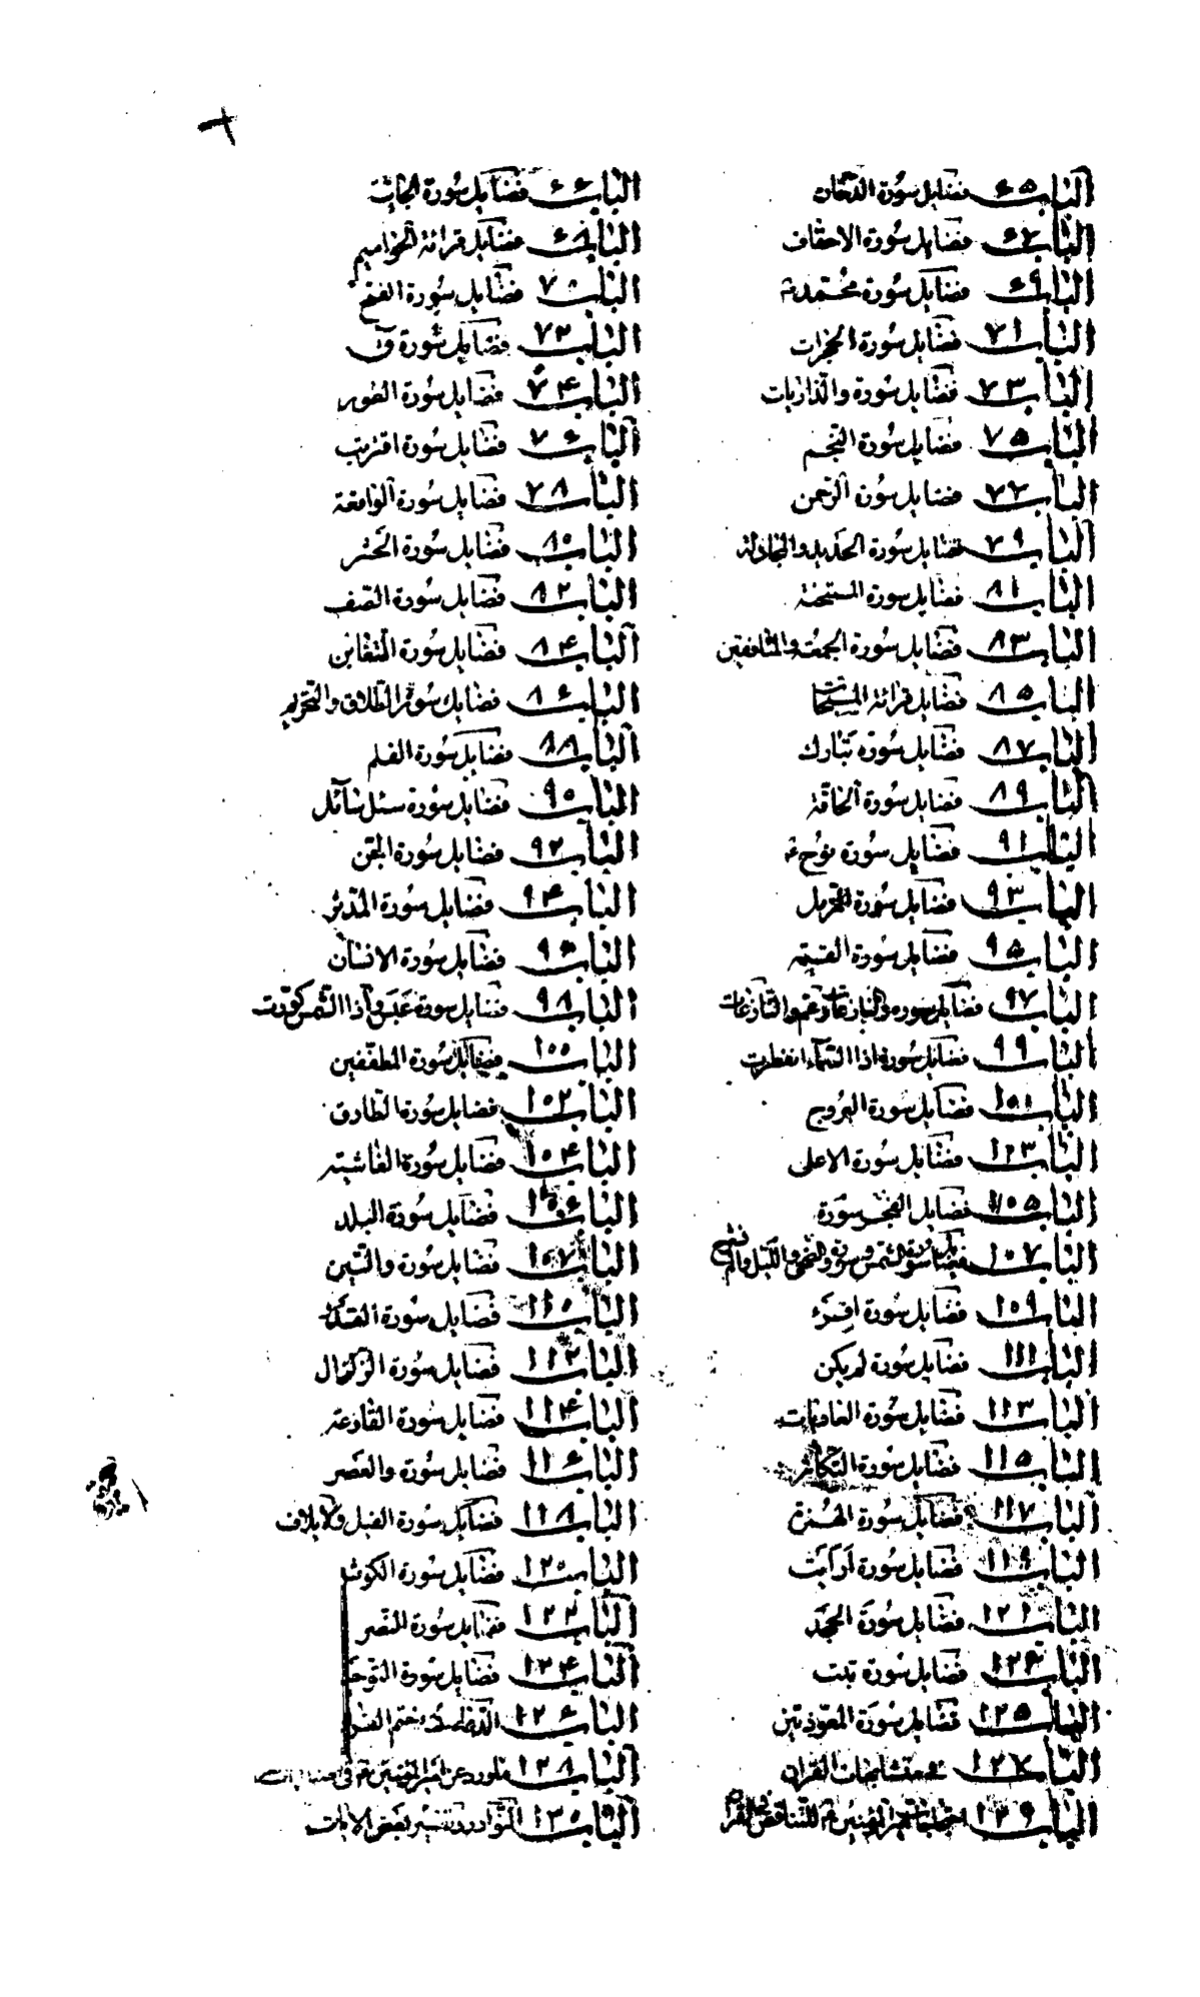 الباب ۶۵ فضايل سورة الدخان
الباب ۶۶ فضايل سورة الجاثية
الباب ۶۷ فضايل سورة الاحقاف
الباب ۶۸ فضايل قرائة الحواميم
الباب ۶۹ فضايل سورة محمد
الباب ۷۰ فضايل سورة الفتح
الباب ۷۱ فضايل سورة الحجرات
الباب ۷۲ فضايل سورة ق
الباب ۷۳ فضايل سورة والذاريات
الباب ۷۴ فضايل سورة الطور
الباب ۷۵ فضايل سورة النجم
الباب ۷۶ فضايل سورة اقتربت
الباب ۷۷ فضايل سورة الرحمن
الباب ۷۸ فضايل سورة الواقعة
الباب ۷۹ فضايل سورة الحديد والمجادلة
الباب ۸۰ فضايل سورة الحشر
الباب ۸۱ فضايل سورة الممتحنة
الباب ۸۲ فضايل سورة الصف
الباب ۸۳ فضايل سورة الجمعة والمنافقين
الباب ۸۴ فضايل سورة التغابن
الباب ۸۵ فضايل قرائة المسبحات
الباب ۸۶ فضايل سورة الطلاق والتحريم
الباب ۸۷ فضايل سورة تبارك
الباب ۸۸ فضايل سورة القلم
الباب ۸۹ فضايل سورة الحاقة
الباب ۹۰ فضايل سورة سئل سآئل
الباب ۹۱ فضايل سورة نوح
الباب ۹۲ فضايل سورة الجن
الباب ۹۳ فضايل سورة المزمل
الباب ۹۴ فضايل سورة المدثر
الباب ۹۵ فضايل سورة القيمه
الباب ۹۶ فضايل سورة الانسان
الباب ۹۷ فضايل سوره والنازعات
الباب ۹۸ فضايل سورة عبس واذا الشمس كورت
الباب ۹۹ فضايل سورة اذا السماء انفطرت
الباب ۱۰۰ فضايل سورة المطففين
الباب ۱۰۱ فضايل سورة البروج
الباب ۱۰۲ فضايل سورة الطارق
الباب ۱۲۳ فضايل سورة الاعلى
الباب ۱۰۴ فضايل سورة الغاشيته
الباب ۱۰۵ فضايل الفجر سورة
الباب ۱۰۶ فضايل سورة البلد
الباب ۱۰۷ فضايل سورة الشمس وسورة والضحى والليل والم نشرح
الباب ۱۰۷ فضايل سورة والتين
الباب ۱۰۹ فضايل سورة اقرء
الباب ۱۱۰ فضايل سورة القدر
الباب ۱۱۱ فضايل سورة لم يكن
الباب ۱۱۲ فضايل سورة الزلزال
الباب ۱۱۳ فضايل سورة العاديات
الباب ۱۱۴ فضايل سورة القارعة
الباب ۱۱۵ فضايل سورة التكاثر
الباب ۱۱۶ فضايل سورة والعصر
الباب ۱۱۷ فضايل سورة الهمزة
الباب ۱۱۸ فضايل سورة الفيل ولايلاف
الباب ۱۱۹ فضايل سورة ارايت
الباب ۱۲۰ فضايل سورة الكوثر
الباب ۱۲۱ فضايل سورة الجحد
الباب ۱۲۲ فضايل سورة النصر
الباب ۱۲۳ فضايل سورة تبت
الباب ۱۲۴ فضايل سورة التوحيد
الباب ۱۲۵ فضايل سورة المعوذتين
الباب ۱۲۶ الدعاء عند ختم القران
الباب ۱۲۷ متشابهات القران
الباب ۱۲۸ ماورد عن امير المؤمنين
الباب ۱۲۹ احتجاجات امير المؤمنين
الباب ۱۳۰ النوادر وتفسير بعض الايات